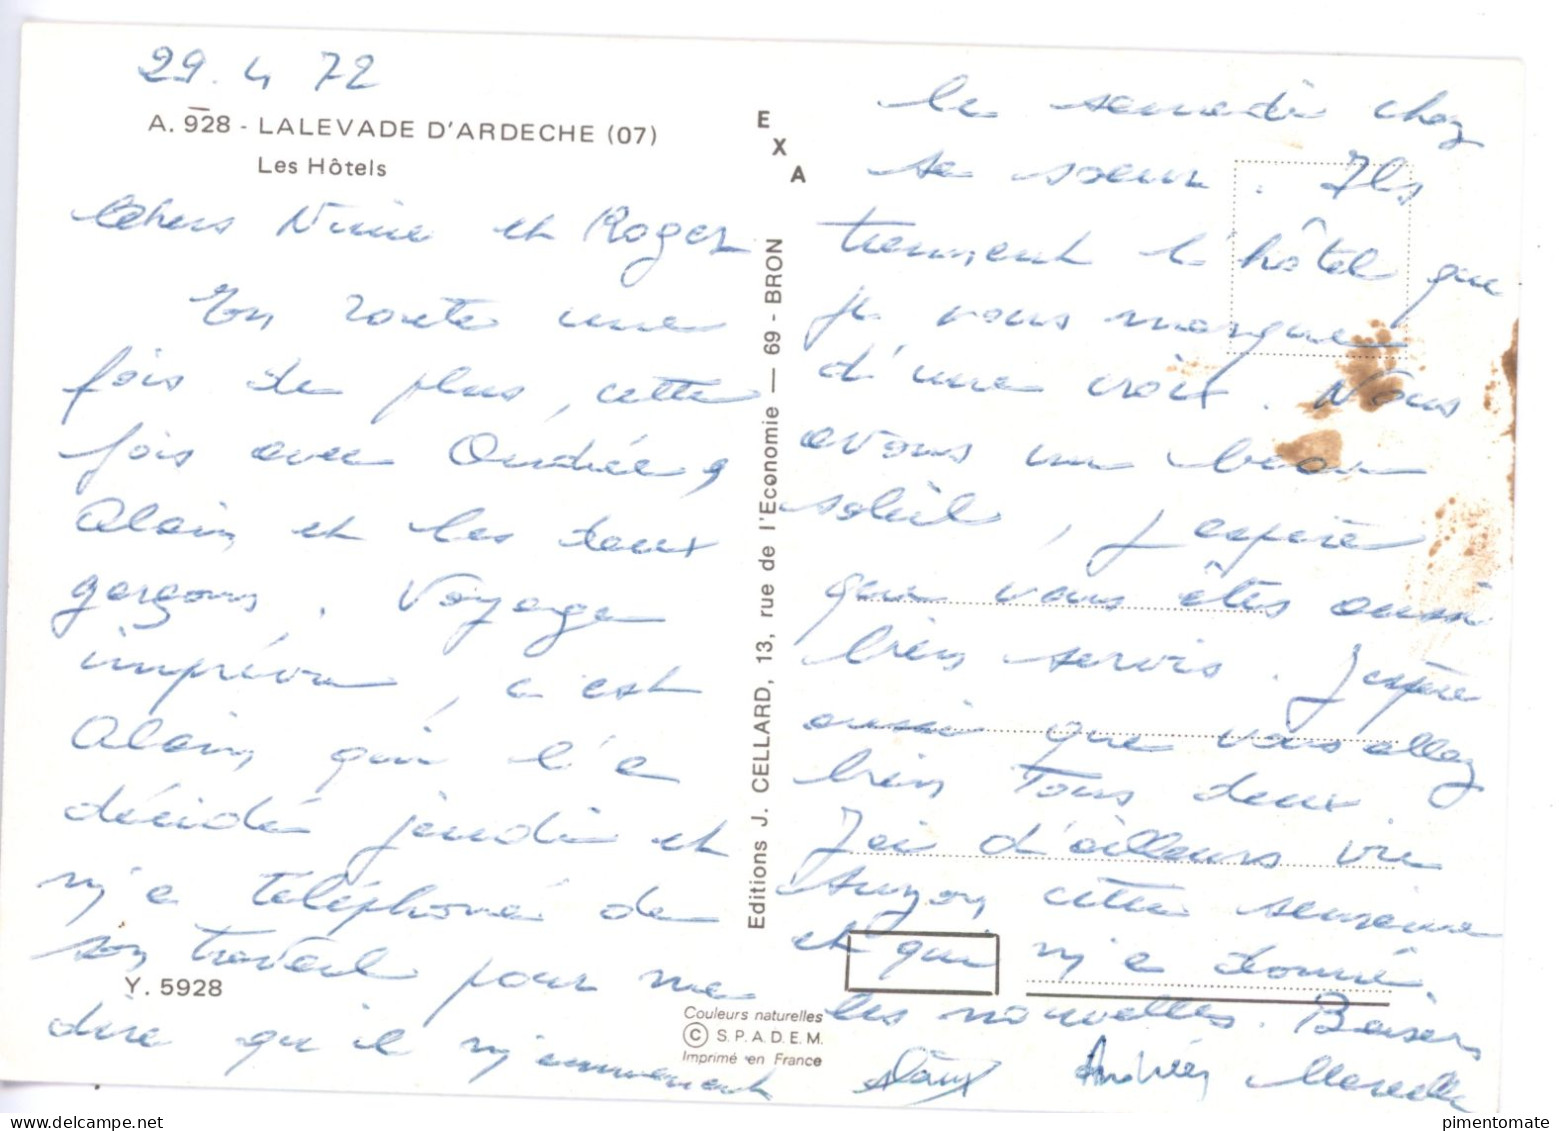 29.4 72
A. 928 - LALEVADE D'ARDECHE (07)
Les Hôtels
Chers Ninie et Roger
En route une
fois de plus, cette
fois avec Andrée,
Alain et les deux
garçons. Voyage
imprévu, c'est
Alain qui l'a
décidé jeudi et
m'a téléphoné de
son travail pour me
dire qu'il m'emmenait
le samedi chez
sa soeur. Ils
tiennent l'hôtel que
je vous marque
d'une croix. Nous
avons un beau
soleil, j'espère
que vous êtes aussi
bien servis. J'espère
aussi que vous allez
bien Tous deux.
J'ai d'ailleurs vu
Suzon cette semaine
et qui m'a donné
les nouvelles. Baisers
Alain Andrée Marcelle
EXA
Editions J. CELLARD, 13, rue de l'Economie — 69 - BRON
Y. 5928
Couleurs naturelles
© S.P.A.D.E.M.
Imprimé en France
pimentomate